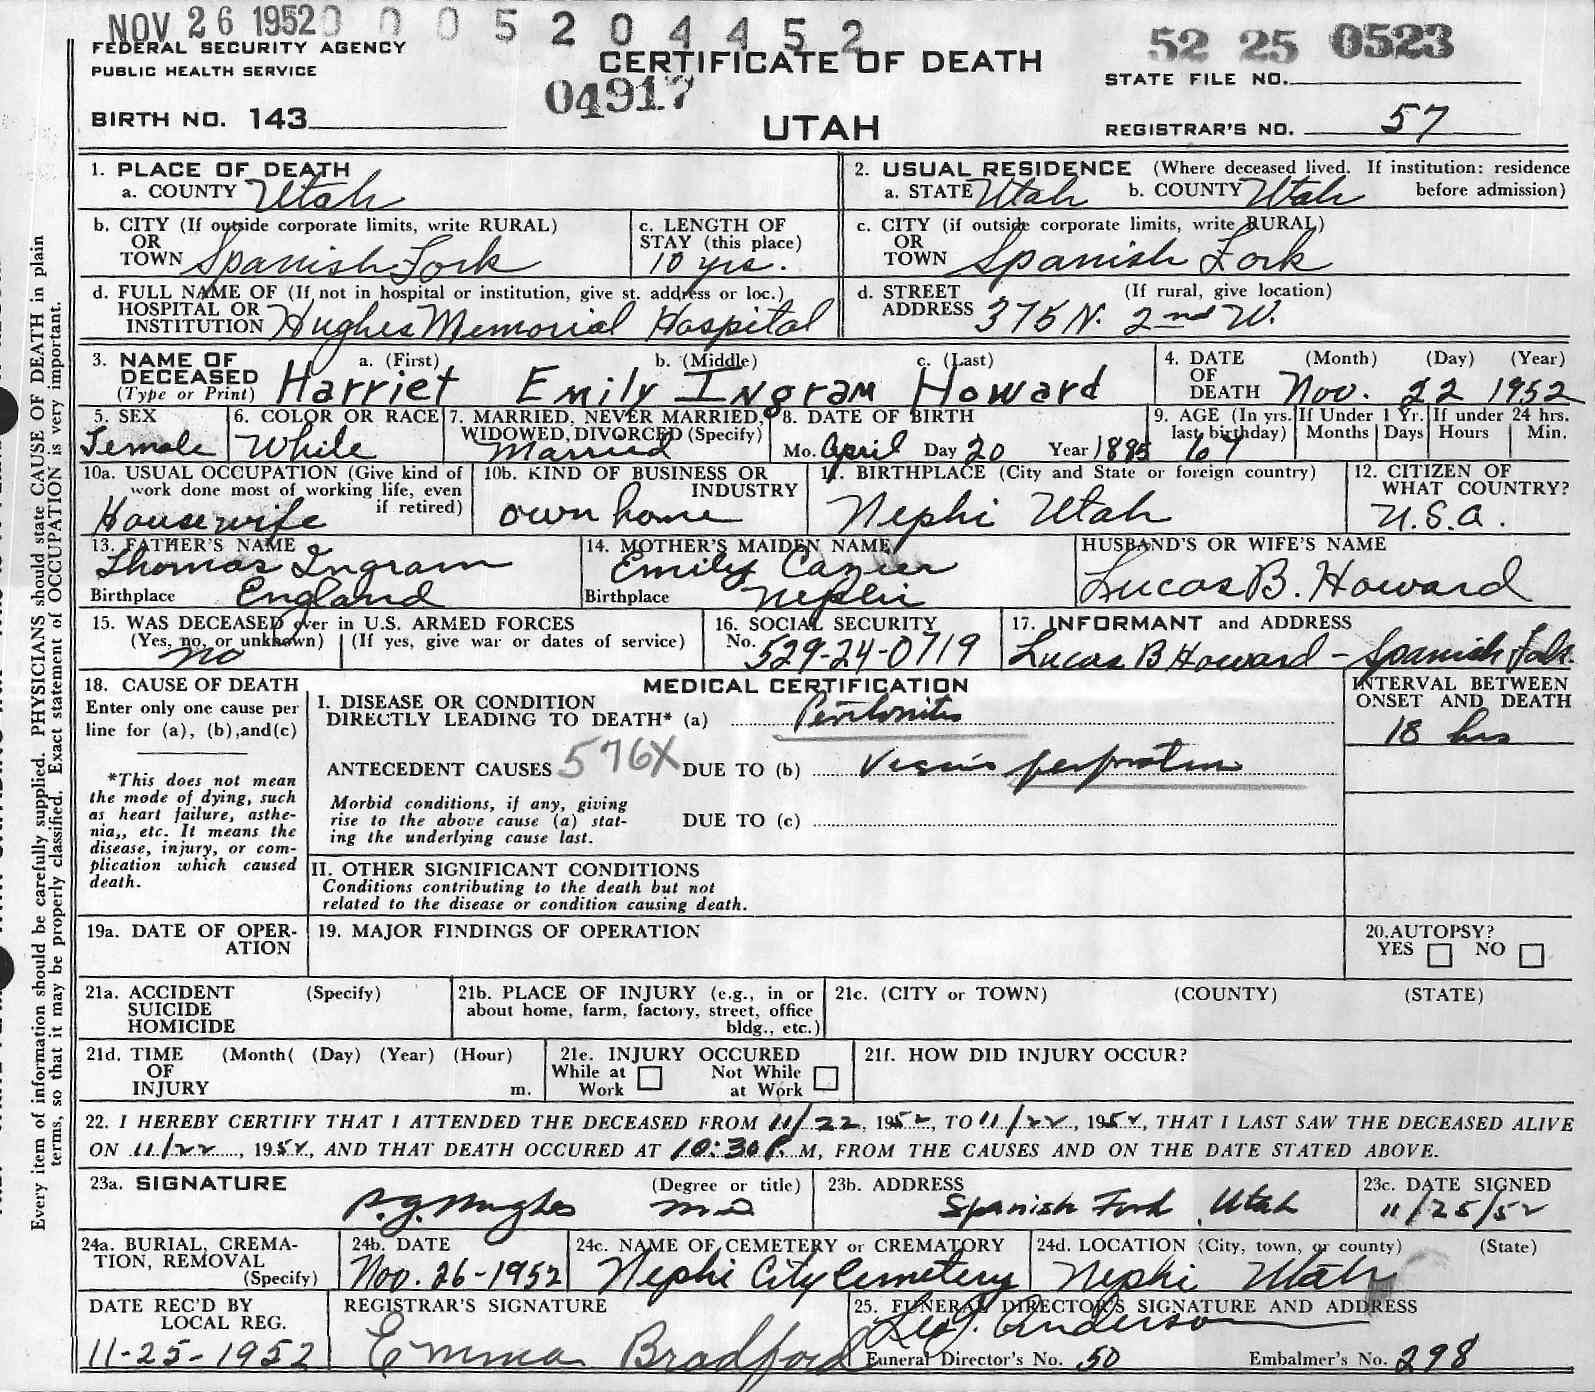 NOV 26 1952 0 0 0 5 2 0 4 4 5 2
52 25 0523
FEDERAL SECURITY AGENCY
PUBLIC HEALTH SERVICE
CERTIFICATE OF DEATH
STATE FILE NO.
04917
BIRTH NO. 143
UTAH
REGISTRAR'S NO. 57
1. PLACE OF DEATH
a. COUNTY Utah
2. USUAL RESIDENCE (Where deceased lived. If institution: residence before admission)
a. STATE Utah b. COUNTY Utah
b. CITY (If outside corporate limits, write RURAL)
OR
TOWN Spanish Fork
c. LENGTH OF
STAY (this place)
10 yrs.
c. CITY (if outside corporate limits, write RURAL)
OR
TOWN Spanish Fork
d. FULL NAME OF (If not in hospital or institution, give st. address or loc.)
HOSPITAL OR
INSTITUTION Hughes Memorial Hospital
d. STREET (If rural, give location)
ADDRESS 375 N. 2nd W.
3. NAME OF DECEASED (Type or Print)
a. (First) b. (Middle) c. (Last)
Harriet Emily Ingram Howard
4. DATE OF DEATH (Month) (Day) (Year)
Nov. 22 1952
5. SEX
Female
6. COLOR OR RACE
White
7. MARRIED, NEVER MARRIED,
WIDOWED, DIVORCED (Specify)
Married
8. DATE OF BIRTH
Mo. April Day 20 Year 1885
9. AGE (In yrs. last birthday) 67
If Under 1 Yr. Months Days
If under 24 hrs. Hours Min.
10a. USUAL OCCUPATION (Give kind of
work done most of working life, even
if retired)
Housewife
10b. KIND OF BUSINESS OR
INDUSTRY
own home
11. BIRTHPLACE (City and State or foreign country)
Nephi Utah
12. CITIZEN OF
WHAT COUNTRY?
U.S.A.
13. FATHER'S NAME
Thomas Ingram
Birthplace England
14. MOTHER'S MAIDEN NAME
Emily Cazier
Birthplace Nephi
HUSBAND'S OR WIFE'S NAME
Lucas B. Howard
15. WAS DECEASED ever in U.S. ARMED FORCES
(Yes, no, or unknown) (If yes, give war or dates of service)
no
16. SOCIAL SECURITY
No. 529-24-0719
17. INFORMANT and ADDRESS
Lucas B Howard - Spanish Fork.
18. CAUSE OF DEATH
Enter only one cause per
line for (a), (b), and (c)
*This does not mean
the mode of dying, such
as heart failure, asthe-
nia,, etc. It means the
disease, injury, or com-
plication which caused
death.
MEDICAL CERTIFICATION
I. DISEASE OR CONDITION
DIRECTLY LEADING TO DEATH* (a) Peritonitis
ANTECEDENT CAUSES 576X DUE TO (b) perforation
Morbid conditions, if any, giving
rise to the above cause (a) stat-
ing the underlying cause last.
DUE TO (c)
II. OTHER SIGNIFICANT CONDITIONS
Conditions contributing to the death but not
related to the disease or condition causing death.
INTERVAL BETWEEN
ONSET AND DEATH
18 hrs
19a. DATE OF OPER-
ATION
19. MAJOR FINDINGS OF OPERATION
20. AUTOPSY?
YES NO
21a. ACCIDENT (Specify)
SUICIDE
HOMICIDE
21b. PLACE OF INJURY (e.g., in or
about home, farm, factory, street, office
bldg., etc.)
21c. (CITY or TOWN) (COUNTY) (STATE)
21d. TIME (Month( (Day) (Year) (Hour)
OF
INJURY m.
21e. INJURY OCCURED
While at Work Not While at Work
21f. HOW DID INJURY OCCUR?
22. I HEREBY CERTIFY THAT I ATTENDED THE DECEASED FROM 11/22, 1952, TO 11/22, 1952, THAT I LAST SAW THE DECEASED ALIVE
ON 11/22, 1952, AND THAT DEATH OCCURED AT 10:30 P. M, FROM THE CAUSES AND ON THE DATE STATED ABOVE.
23a. SIGNATURE (Degree or title)
Hughes MD
23b. ADDRESS
Spanish Fork, Utah
23c. DATE SIGNED
11/25/52
24a. BURIAL, CREMA-
TION, REMOVAL
(Specify)
24b. DATE
Nov. 26-1952
24c. NAME OF CEMETERY or CREMATORY
Nephi City Cemetery
24d. LOCATION (City, town, or county) (State)
Nephi Utah
DATE REC'D BY
LOCAL REG.
11-25-1952
REGISTRAR'S SIGNATURE
Emma Bradford
25. FUNERAL DIRECTOR'S SIGNATURE AND ADDRESS
Anderson
Funeral Director's No. 50 Embalmer's No. 298
Every item of information should be carefully supplied. PHYSICIANS should state CAUSE OF DEATH in plain
terms, so that it may be properly classified. Exact statement of OCCUPATION is very important.